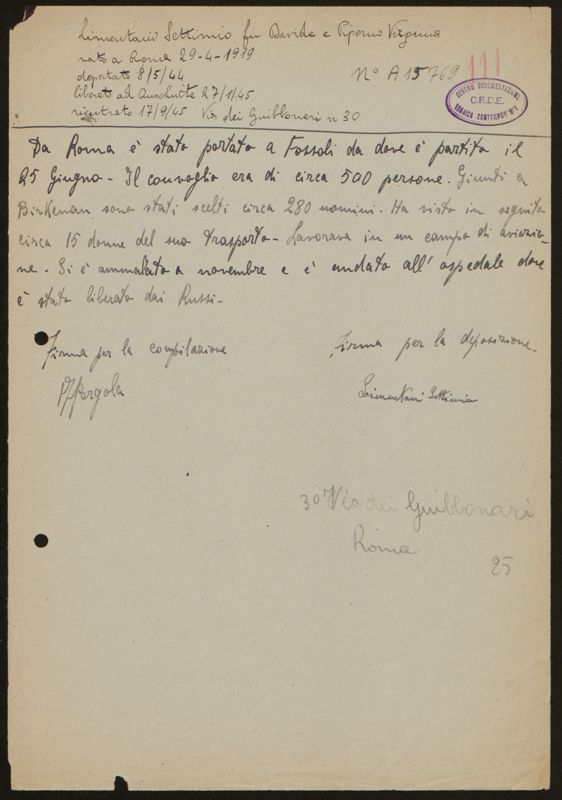 Limentani Settimio fu Davide e Piperno Virginia
nato a Roma 29-4-1919
deportato 8/5/44
liberato ad Auschwitz 27/1/45
rientrato 17/9/45 Via dei Guibbonari n 30
N° A15769
111
CENTRO DOCUMENTAZIONE
C.R.D.E.
EBRAICA CONTEMPOR. N° 1
Da Roma è stato portato a Fossoli da dove è partito il
25 Giugno - Il convoglio era di circa 500 persone. Giunti a
Birkenau sono stati scelti circa 280 uomini. Ha visto in seguito
circa 15 donne del suo trasporto - Lavorava in un campo di aviazio-
ne. Si è ammalato a novembre e è andato all'ospedale dove
è stato liberato dai Russi -
Firma per la compilazione
Firma per la deposizione -
Pergola
Limentani Settimio
30 Via dei Guibbonari
Roma
25